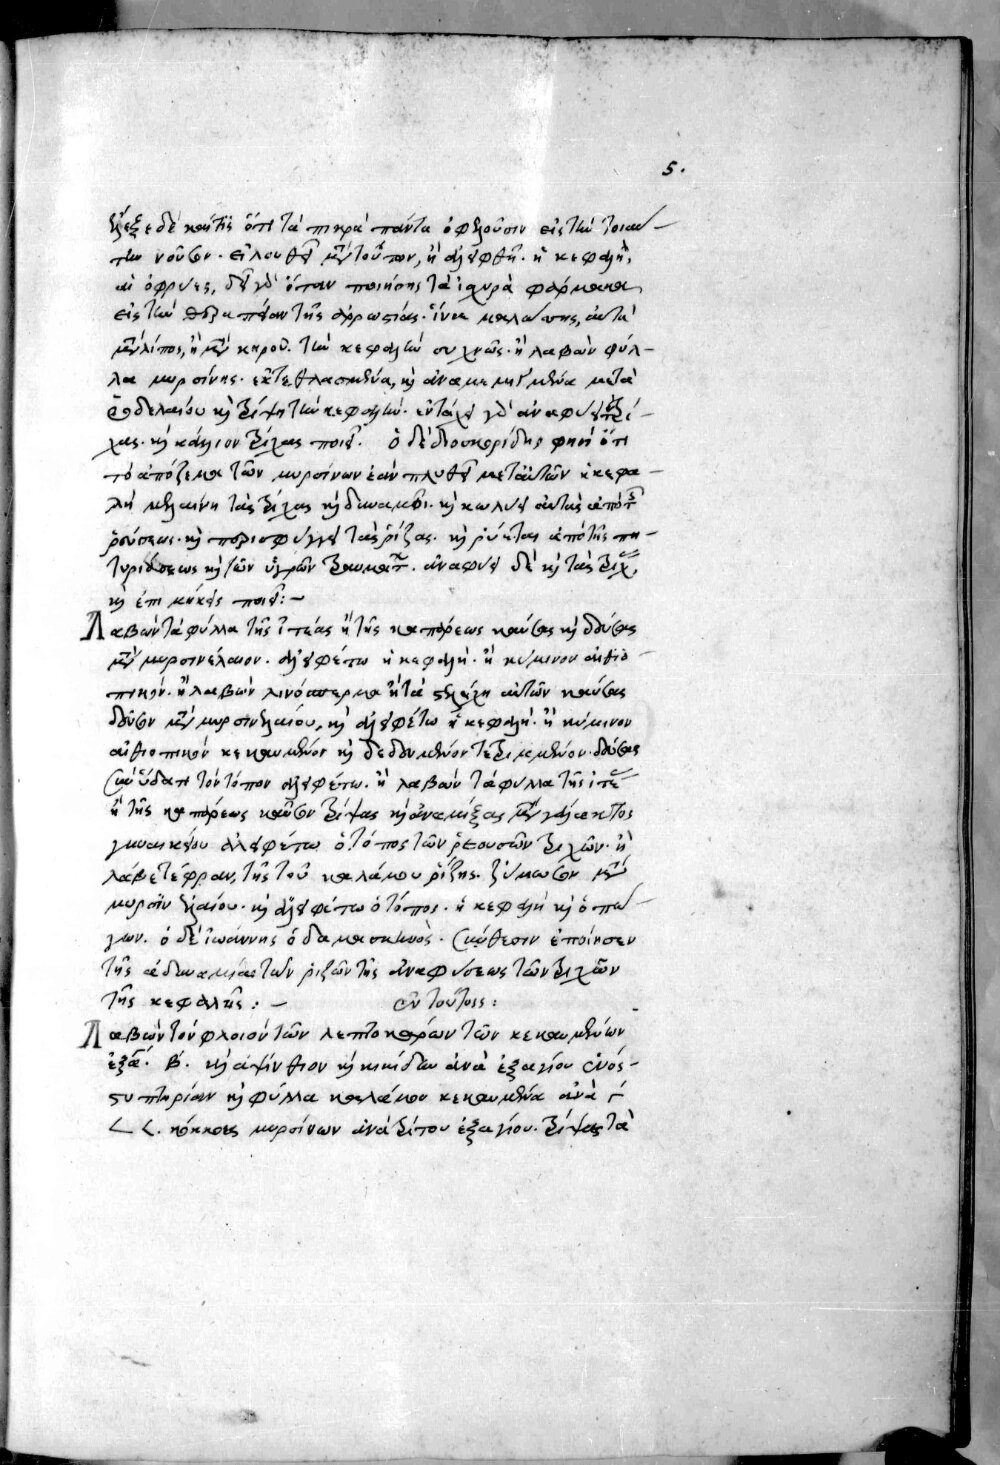 5.
ἔλεξε δὲ καί τις ὅτι τὰ πικρὰ πάντα ὀφελοῦσιν εἰς τὴν τοιαύ-
την νοῦσον. εἰ λουθῇ μετὰ τούτων, ἢ ἀλειφθῇ. ἡ κεφαλὴ,
αἱ ὀφρύες, δεῖ γὰρ ὅταν ποιήσης τὰ ἰσχυρὰ φάρμακα
εἰς τὴν θεραπείαν τῆς ἀρρωστίας. ἵνα μαλάσσης, αὐτὰ
μετὰ λίπος, ἢ μετὰ κηροῦ. τὴν κεφαλὴν συχνῶς. ἢ λαβὼν φύλ-
λα μυρσίνης. ἐκτεθλασμένα, καὶ ἀναμεμιγμένα μετὰ
ῥοδελαίου καὶ τρίψη τὴν κεφαλήν. ἐν τάχει γὰρ ἀναφύει τρί-
χας. καὶ κάλλιον τρίχας ποιεῖ. ὁ δὲ διοσκορίδης φησὶ ὅτι
τὸ ἀπόζεμα τῶν μυρσίνων ἐὰν πλυθῇ μετ' αὐτῶν ἡ κεφα-
λὴ μελαίνη τὰς τρίχας καὶ δυναμοῖ. καὶ κωλύει αὐτὰς ἀπὸ τῆς
ῥεύσεως. καὶ περισφίγγει τὰς ῥίζας. καὶ ῥύεται ἀπὸ τῆς πι-
τυριάσεως καὶ τῶν ὑγρῶν τραυμάτων. ἀναφύει δὲ καὶ τὰς τρίχας,
καὶ ἐπιμήκεις ποιεῖ:~
Λαβὼν τὰ φύλλα τῆς ἰτέας ἢ τῆς καππάρεως καύσας καὶ δεύσας
μετὰ μυρσινέλαιον. ἀλειφέτω ἡ κεφαλή. ἢ κύμινον αἰθιο-
πικόν. ἢ λαβὼν λινόσπερμα ἢ τὰ στελέχη αὐτῶν καύσας
δεῦσον μετὰ μυρσινελαίου, καὶ ἀλειφέτω ἡ κεφαλή. ἢ κύμινον
αἰθιοπικὸν κεκαυμένον καὶ δεδευμένον τετριμμένον. δεύσας
σὺν ὕδατι τὸν τόπον ἀλειφέτω. ἢ λαβὼν τὰ φύλλα τῆς ἰτέας
ἢ τῆς καππάρεως καῦσον τρίψας καὶ ἀναμίξας μετὰ γάλακτος
γυναικείου ἀλειφέτω ὁ τόπος τῶν ῥεουσῶν τριχῶν. ἢ
λάβε τέφραν, τῆς τοῦ καλάμου ῥίζης. ζύμωσον μετὰ
μυρσινελαίου. καὶ ἀλειφέτω ὁ τόπος. ἡ κεφαλὴ καὶ ὁ πώ-
γων. ὁ δὲ ἰωάννης ὁ δαμασκηνὸς. σύνθεσιν ἐποίησεν
τῆς ἀδυναμίας τῶν ῥιζῶν τῆς ἀναφύσεως τῶν τριχῶν
τῆς κεφαλῆς:~ ἐν τούτοις:
Λαβὼν τὸν φλοιὸν τῶν λεπτοκαρύων τῶν κεκαυμένων
ἐξάγ. β. καὶ ἀψίνθιον καὶ κικίδιον ἀνὰ ἐξαγίου ἑνός-
στυπτηρίαν καὶ φύλλα καλάμου κεκαυμένα ἀνὰ γ
<<. κόκκους μυρσίνων ἀνὰ τρίτου ἐξαγίου. τρίψας τὰ